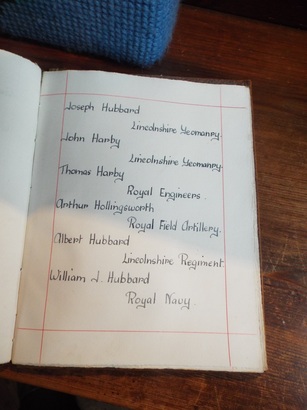 Joseph Hubbard
Lincolnshire Yeomanry.
John Harby
Lincolnshire Yeomanry.
Thomas Harby
Royal Engineers.
Arthur Hollingsworth
Royal Field Artillery.
Albert Hubbard
Lincolnshire Regiment
William J. Hubbard
Royal Navy.